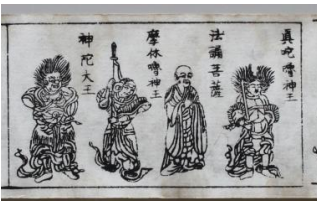 眞陀嚕神王
法誦菩薩
摩休嚕神王
神陀大王